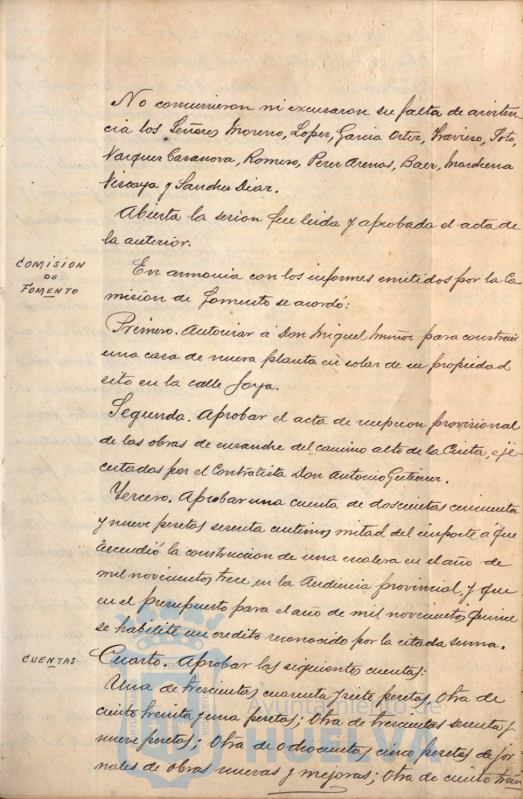 No concurrieron ni excusaron su falta de asisten-
cia los Señores Moreno, Lopez, Garcia Ortiz, Traviero, Toto,
Vazquez Casanova, Romero, Perez Arenas, Baez, Mardiena
Vizcaya y Sanchez Diaz.
Abierta la sesion fue leida y aprobada el acta de
la anterior.
COMISION
DE
FOMENTO
En armonia con los informes emitidos por la Co
mision de Fomento se acordó:
Primero. Autorizar á Don Miguel Muñoz para construir
una casa de nueva planta en solar de su propiedad
sito en la calle Goya.
Segundo. Aprobar el acta de recepcion provisional
de las obras de ensanche del camino alto de la Cinta, eje
cutadas por el Contratista Don Antonio Gutierrez.
Tercero. Aprobar una cuenta de doscientas cincuenta
y nueve pesetas sesenta centimos mitad del importe á que
ascendió la construccion de una escalera en el año de
mil novecientos trece, en la Audiencia provincial, y que
en el presupuesto para el año de mil novecientos quince
se habilite un credito reconocido por la citada suma.
CUENTAS
Cuarto. Aprobar las siguientes cuentas:
Una de trescientas cuarenta y siete pesetas. Otra de
ciento treinta y una pesetas; Otra de trescientas sesenta y
nueve pesetas; Otra de ochocientas cinco pesetas de jor
nales de obras nuevas y mejoras; Otra de ciento trein
Ayuntamiento de
HUELVA